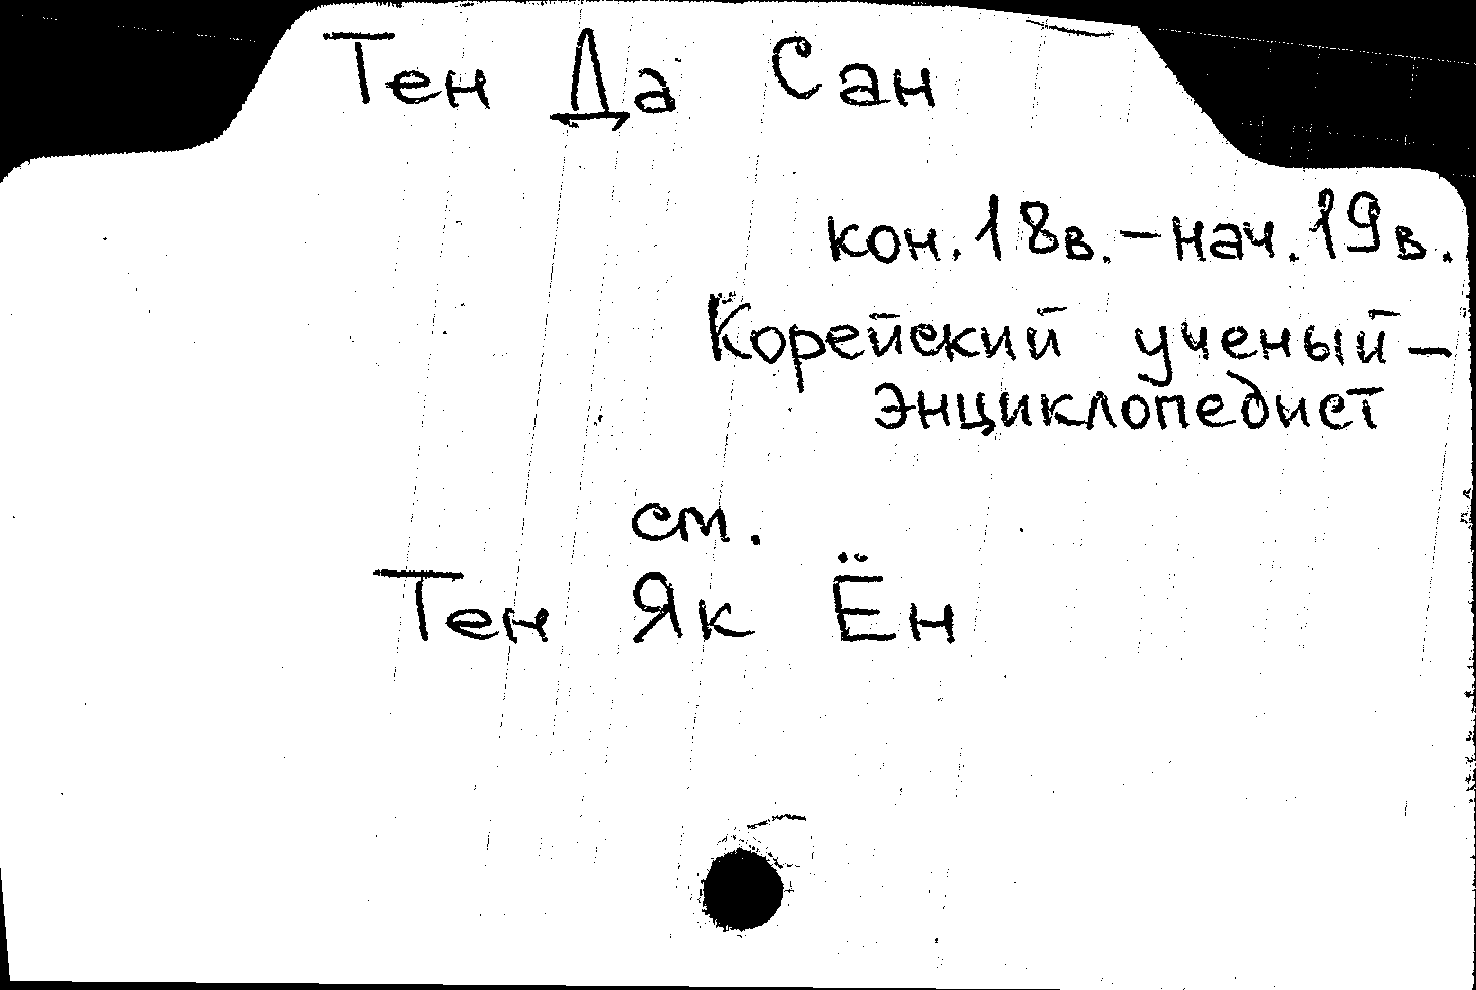 Тен Да Сан
кон. 18в. – нач. 19в.
Корейский ученый –
энциклопедист
см.
Тен Як Ён